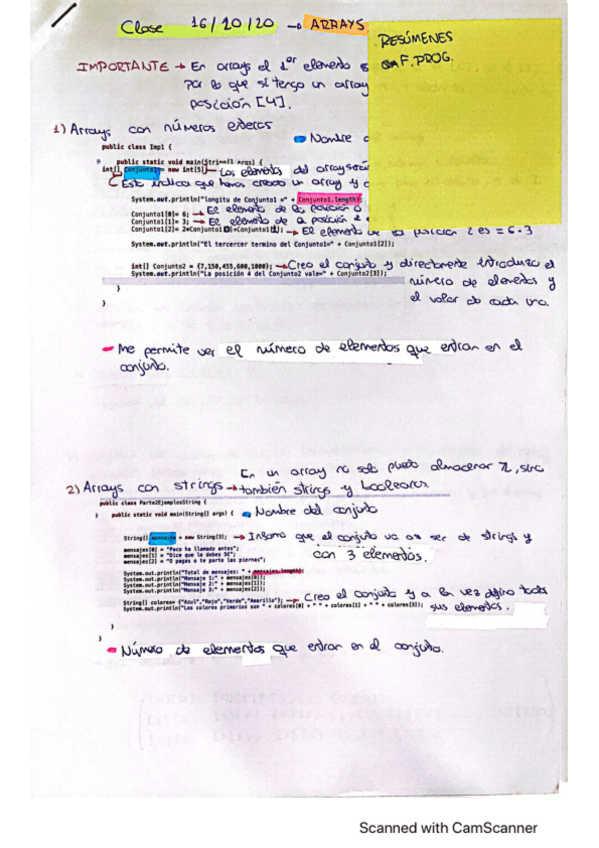 Clase 16/10/20 → ARRAYS
RESÚMENES
F. PROG.
IMPORTANTE → En arrays el 1er elemento
Por lo que si tengo un array
posición [4].
1) Arrays con números enteros
Nombre
public class Imp1 {
public static void main(String[] args) {
int[] Conjunto1 = new int[5]; → Los elementos del array serán
Esto indica que hemos creado un array y
System.out.println("longitu de Conjunto1 =" + Conjunto1.length);
Conjunto1[0]= 6; → El elemento de la posición 0
Conjunto1[1]= 3; → El elemento de la posición 1
Conjunto1[2]= 2*Conjunto1[0]*Conjunto1[1]; → El elemento de la posición 2 es = 6·3
System.out.println("El tercercer termino del Conjunto1=" + Conjunto1[2]);
int[] Conjunto2 = {7,150,455,600,1000}; → Creo el conjunto y directamente introduzco el
System.out.println("La posición 4 del Conjunto2 vale=" + Conjunto2[3]);
número de elementos y
}
el valor de cada uno.
}
Me permite ver el número de elementos que entran en el
conjunto.
En un array no solo puedo almacenar Z, sino
2) Arrays con strings → también strings y booleanos.
public class Parte2EjemplosString {
public static void main(String[] args) {
Nombre del conjunto
String[] mensajes = new String[3]; → Informo que el conjunto va a ser de strings y
con 3 elementos.
mensajes[0] = "Paco ha llamado antes";
mensajes[1] = "Dice que le debes 5€";
mensajes[2] = "O pagas o te parte las piernas";
System.out.println("Total de mensajes: " + mensajes.length);
System.out.println("Mensaje 1:" + mensajes[0]);
System.out.println("Mensaje 2:" + mensajes[1]);
System.out.println("Mensaje 3:" + mensajes[2]);
String[] colores= {"Azul","Rojo","Verde","Amarillo"}; → Creo el conjunto y a la vez digo todos
System.out.println("Los colores primarios son " + colores[0] + " " + colores[1] + " " + colores[3]);
sus elementos.
}
}
Número de elementos que entran en el conjunto.
Scanned with CamScanner